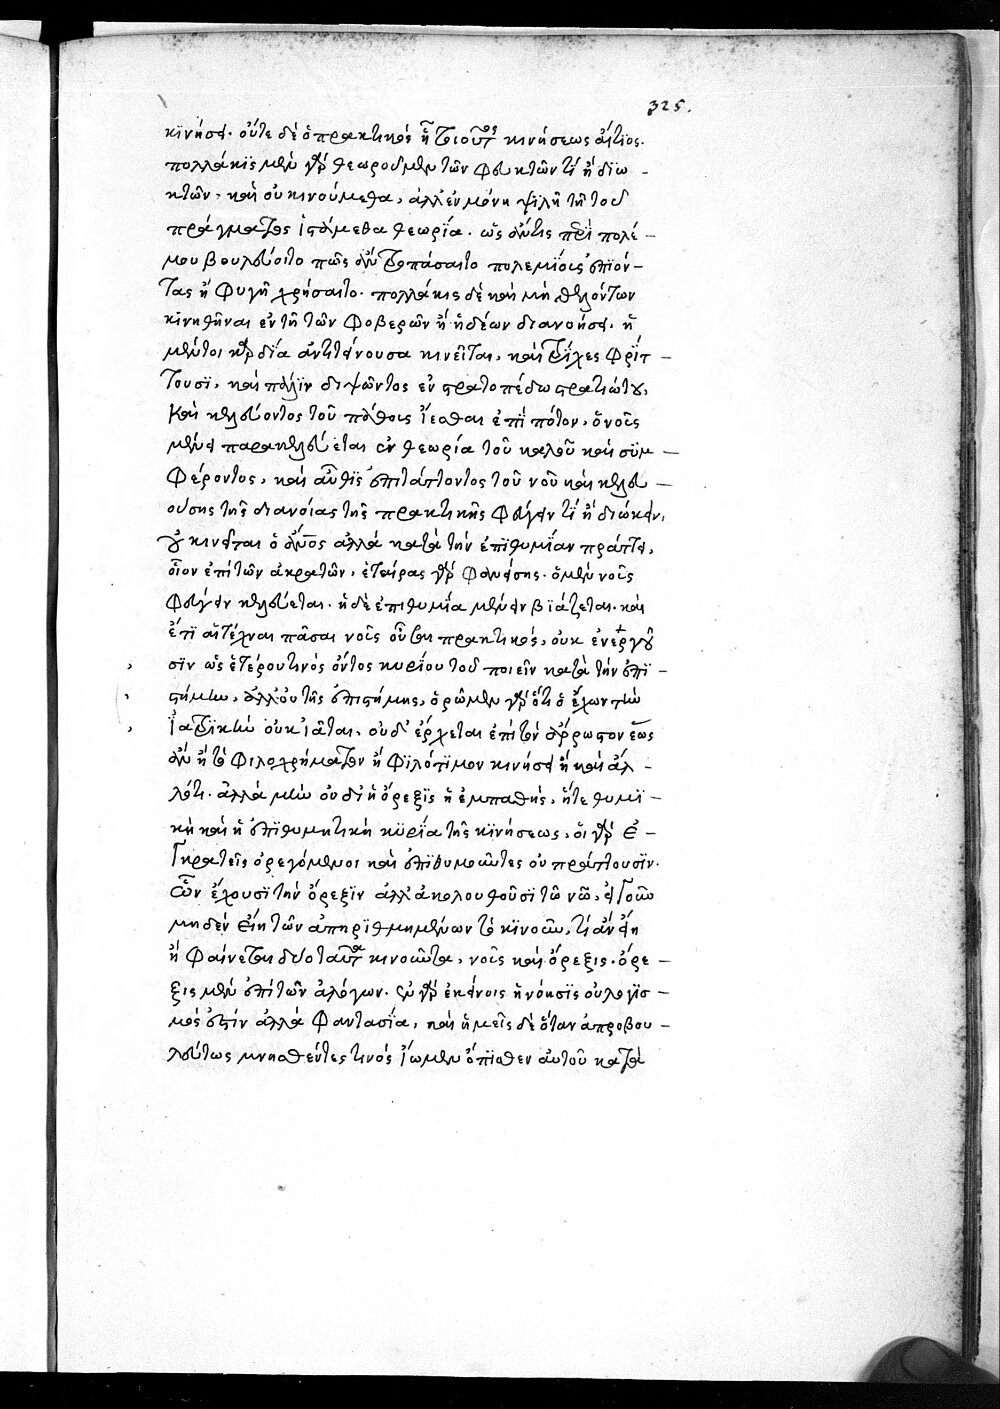 325.
κϊνήσει. οὔτε δὲ ὁ πρακτικὸς ἢ τοιοῦτος κινήσεως αἴτϊος.
πολλάκϊς μὲν γὰρ θεωροῦμεν τῶν φευκτῶν τί ἢ διω -
κτῶν, καὶ οὐ κινούμεθα, ἀλλ' ἐν μόνη ψϊλῆ τῆ τοῦ
πράγματος ἱστάμεθα θεωρΐα. ὡς ἄν τις περὶ πολέ -
μου βουλεύοιτο πῶς ἂν τροπάσαιτο πολεμΐοις ἐπϊόν -
τας ἢ φυγῆ χρήσαιτο. πολλάκις δὲ καὶ μὴ θελόντων
κϊνηθῆναι ἐν τῆ τῶν φοβερῶν ἢ ἡδέων διανοήσει. ἡ
μέντοι καρδία ἀντιτείνουσα κινεῖται, καὶ τρίχες φρΐτ -
τουσϊ, καὶ πάλϊν διψῶντος ἐν στρατοπέδω στρατιώτου,
καὶ κελεύοντος τοῦ πάθους ΐεσθαι ἐπῒ πότον, ὁ νοῦς
μένει παρακελεύεται ἐν θεωρία τοῦ καλοῦ καὶ σϋμ -
φέροντος, καὶ αὖθϊς ἐπιτάττοντος τοῦ νοῦ καὶ κελευ -
ούσης τῆς διανοίας τῆς πρακτικῆς φεύγειν τῒ ἢ διώκειν,
οὐ κινεῖται ὁ ἄνος ἀλλὰ κατὰ τὴν ἐπϊθυμΐαν πράττει,
οἷον ἐπὶ τῶν ἀκρατῶν, ἑταίρας γὰρ φανείσης. ὁ μὲν νοῦς
φεύγειν κελεύεται. ἡ δὲ ἐπιθυμία μένειν βϊάζεται. καὶ
ἔτϊ αἱ τέχναι πᾶσαι νοῦς οὖσαι πρακτικὸς, οὐκ ἐνεργοῦ
σϊν ὡς ἑτέρου τινὸς ὄντος κυρίου τοῦ ποιεῖν κατὰ τὴν ἐπϊ -
στήμην, ἀλλ' οὐ τῆς ἐπιστήμης, ὁρῶμεν γὰρ ὅτι ὁ ἔχων τὴν
ΐατρϊκὴν οὐκ ΐᾶται, οὐδ' ἔρχεται ἐπὶ τὸν ἄρρωστον ἕως
ἂν ἢ τὸ φιλοχρήματον ἢ φϊλότϊμον κινήσει ἢ καὶ ἄλ -
λό τι. ἀλλὰ μὴν οὐδ' ἡ ὄρεξϊς ἡ ἐμπαθὴς, ἥ τε θυμϊ -
κὴ καὶ ἡ ἐπϊθυμητικὴ κϋρΐα τῆς κϊνήσεως, οἱ γὰρ ἐ -
γκρατεῖς ὀρεγόμενοι καὶ ἐπϊθυμοῦντες οὐ πράττουσϊν.
ὧν ἔχουσϊ τὴν ὄρεξϊν ἀλλ' ἀκολουθοῦσϊ τῶ νῶ, εἰ γοῦν
μηδὲν εἴη τῶν ἀπηρϊθμημένων τὸ κϊνοῦν, τί ἂν εἴη
ἢ φαίνεται δύο ταῦτα κινοῦντα, νοῦς καὶ ὄρεξις. ὄρε -
ξις μὲν ἐπὶ τῶν ἀλόγων. ἐν γὰρ ἐκείνοις ἡ νόησϊς οὐ λογϊσ -
μός ἐστὶν ἀλλὰ φαντασΐα, καὶ ἡμεῖς δὲ ὅταν ἀπροβου -
λεύτως μνησθέντες τινὸς ΐωμεν ὄπϊσθεν αὐτοῦ κατὰ